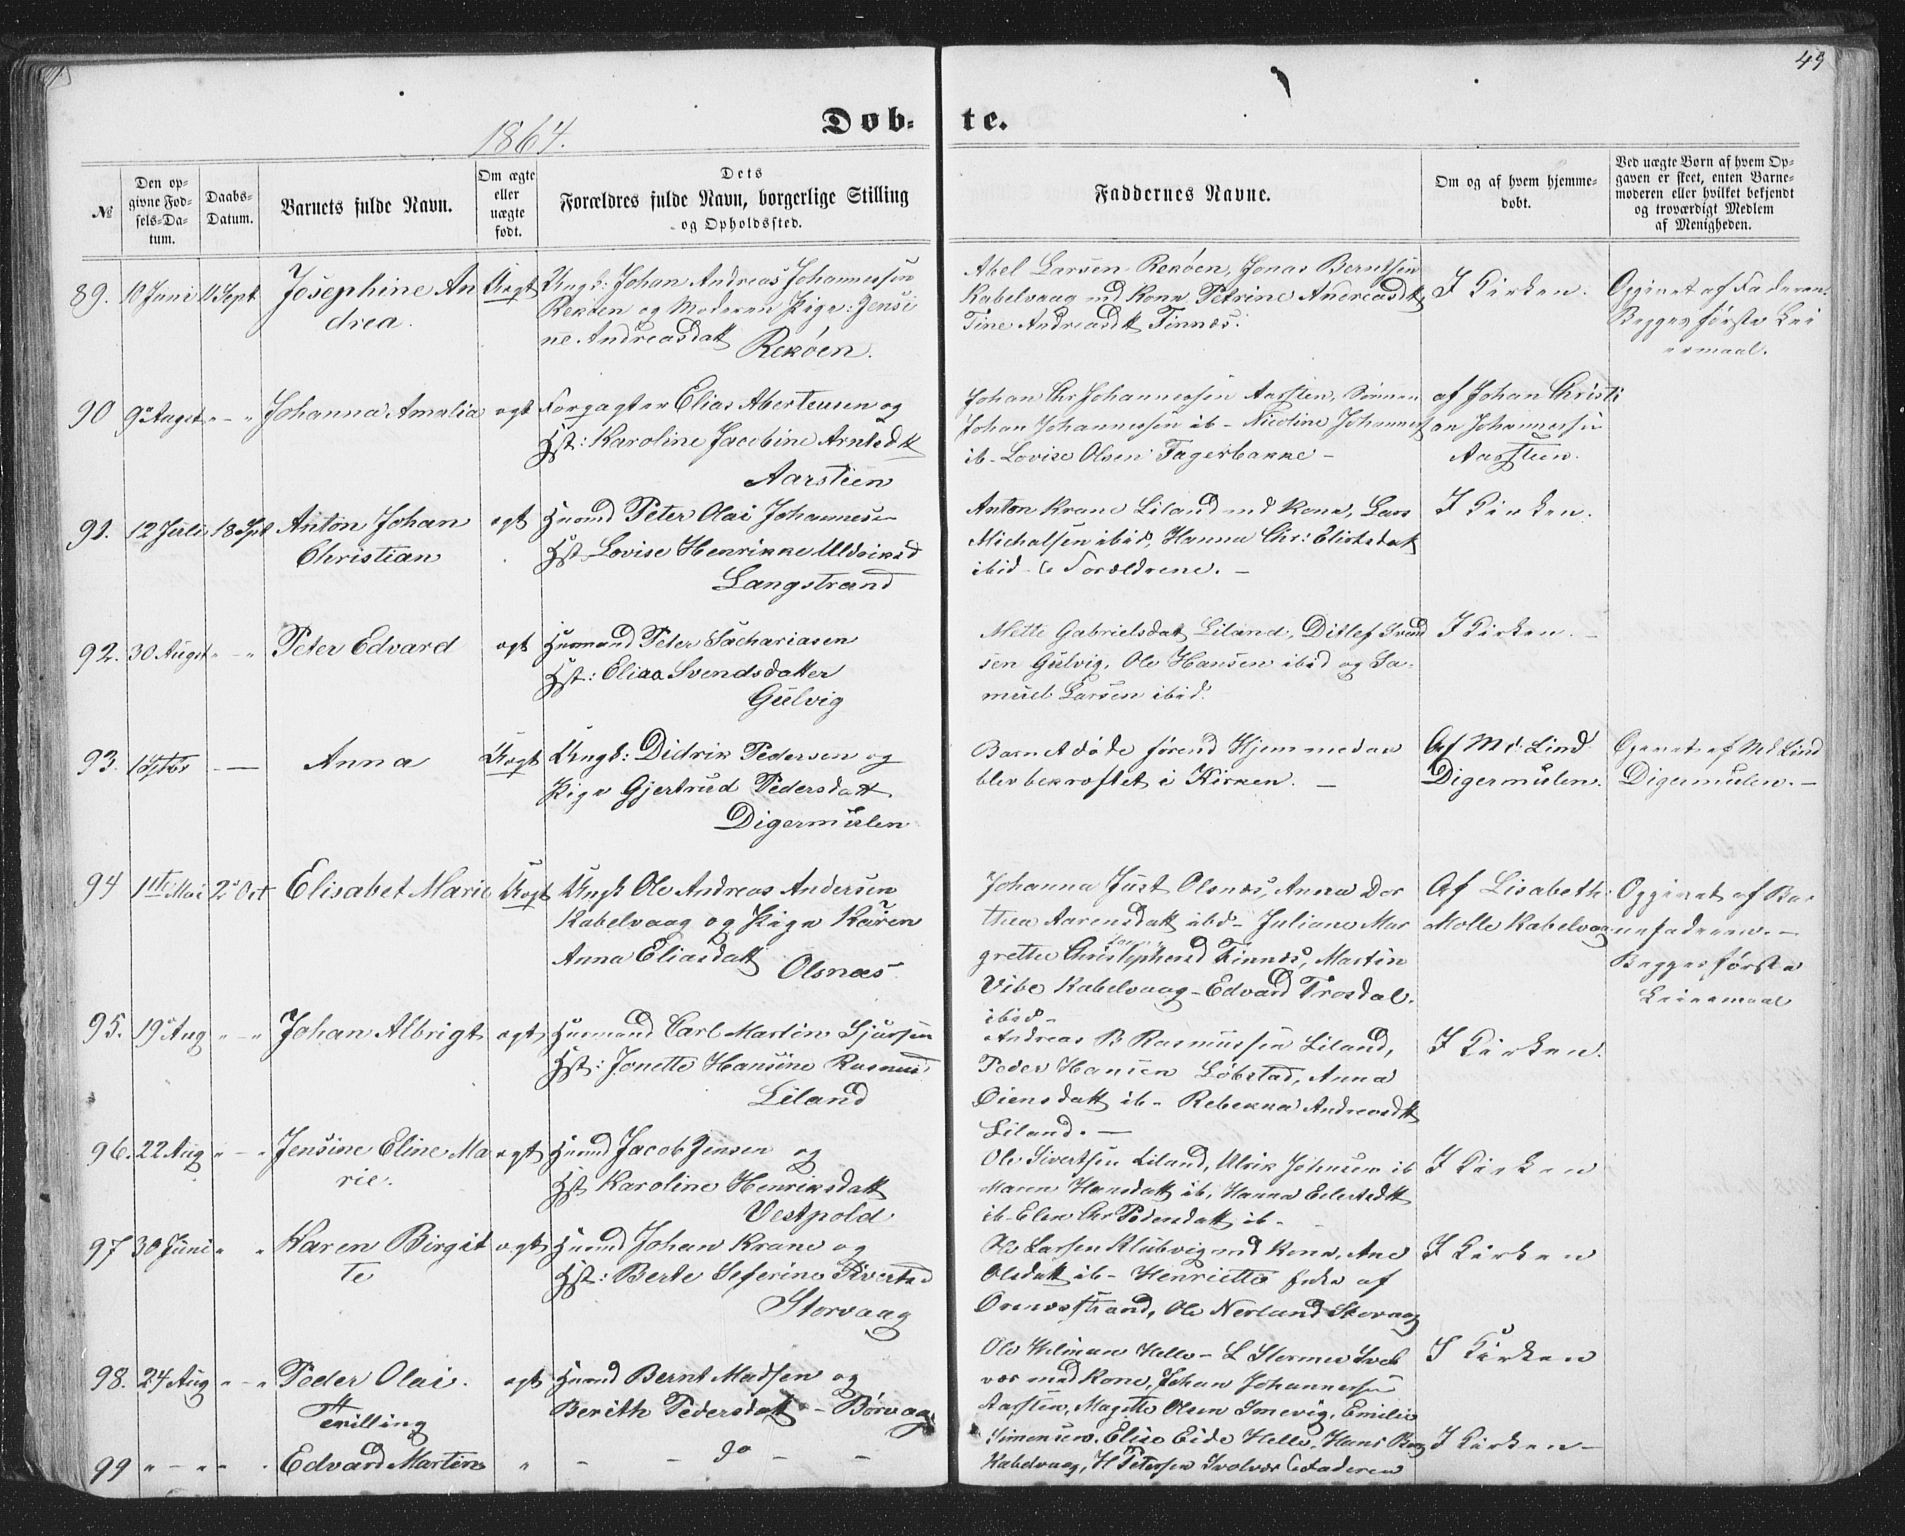 49
1864.
Døb- te.
№
Den op-
givne Fød-
sels-Da-
tum.
Daabs-
Datum.
Barnets fulde Navn.
Om ægte
eller
uægte
født.
Dets
Forældres fulde Navn, borgerlige Stilling
og Opholdssted.
Faddernes Navne.
Om og af hvem hjemme-
døbt.
Ved uægte Børn af hvem Op-
gaven er skeet, enten Barne-
moderen eller hvilket bekjendt
og troværdigt Medlem
af Menigheden.
89. 10 Juni 11 Sept. Josephine An
drea.
Uægt Ungk: Johan Andreas Johannessen
Rekøen og Moderen Pige: Jensi
ne Andreasdatt
Rekøen.
Abel Larsen Rekøen, Jonas Berntsen
Kabelvaag md Kone Petrine Andreasdt
Tine Andreasdtt Finnæs.
I Kirken.
Opgivet af Faderen.
Begges første Lei
ermaal.
90 9 August " - " Johanna Amalia
ægt Forpagter Elias Abertsen og
Hst: Karoline Jacobine Arntsdtt
Aarsteen
Johan Chr Johannessen Aarsteen, Sønnen
Johan Johannessen ib- Nicoline Johannes
ib- Lovise Olsen Fagerbakke -
af Johan Christi
an Johannessen
Aarsteen.
91. 12 Juli 18 Spt Anton Johan
Christian
ægt Huumd Peter Olai Johannesen
Hst Lovise Henrikke Ulderiksd
Langstrand
Anton Krane Liland md Kone, Lars
Michalsen ibid, Hanna Chr:
ibid - & Forældrene. -
I Kirken.
92. 30 August " - " Peter Edvard
ægt Huusmand Peter Sachariasen
Hst: Elisa Svendsdatter
Gulvig
Mette Gabrielsdatt Liland, Ditlef Svend
sen Gulvig, Ole Hansen ibid og Sa-
muel Larsen ibid.
I Kirken. -
93. - Anna
Uægt Ungk: Didrik Pedersen og
Pige Gjertrud Pedersdatt.
Digermulen
Barnet døde førend Hjemmedaaben
blev bekræftet i Kirken. -
Af Md: Lind
Digermulen.
Opgivet af Md Lind
Digermulen. -
94 1ste Mai 2 Oct Elisabet Marie
Uægt Ungk Ole Andreas Andersen
Kabelvaag og Pige Karen
Anna Eliasdatt
Olsnæs.
Johanna Just Olsnæs, Anna Dor
thea Aarensdatt ibd- Juliane Mar
grethe Christophersd Finnæs, Martin
Vibe Kabelvaag - Edvard Trosdal.
ibid-
Af Lisabeth
Molle Kabelvaag
Opgivet af Bar
nefaderen. -
Begges første
Leiermaal
95. 19 Aug " - " Johan Albrigt
ægt Huusmand Carl Martin Sjursen
Hst: Jonette Hansine Rasmusd
Liland
Andreas B Rasmussen Liland,
Peder Hansen Løbstad, Anna
Oiensdatt ib- Rebekka Andreasdtt
Liland. -
I Kirken.
96. 22 Aug " - " Jensine Eline Ma
rie.
ægt Huumd Jacob Jensen og
Hst Karoline Henriksdatt
Vestpold
Ole Sivertsen Liland, Ulrik Johnsen ib
Maren Hansdatt ib, Hanna
ib- Elen Chr Pedersdatt ib-
I Kirken
97 30 Juni " " Karen Birgit
te
ægt Huumd Johan Krane og
Hst: Berte Seferine Sivertsd
Storvaag
Ole Larsen Klubvig md Kone, Ane
Olsdatt ib- Henriette Enke af
Ørnesstrand, Ole Nerland Storvaag
I Kirken
98. 24 Aug " - " Peder Olai.
Tvilling
ægt Huumd Bernt Madsen og
Berith Pedersdatt - Børvaag
Ole Hilman Helle - L Stormer Svol
vær med Kone, Johan Johannessen
Aarsteen, Magthe Olsen Smevig, Emilie
I Kirken
99 " - " " Edvard Martin
" - - do - -
Simonsen, Elise Eide Helle, Hans Berg
Kabelvaag, H Petersen Svolvær & Faderen
I Kirken -